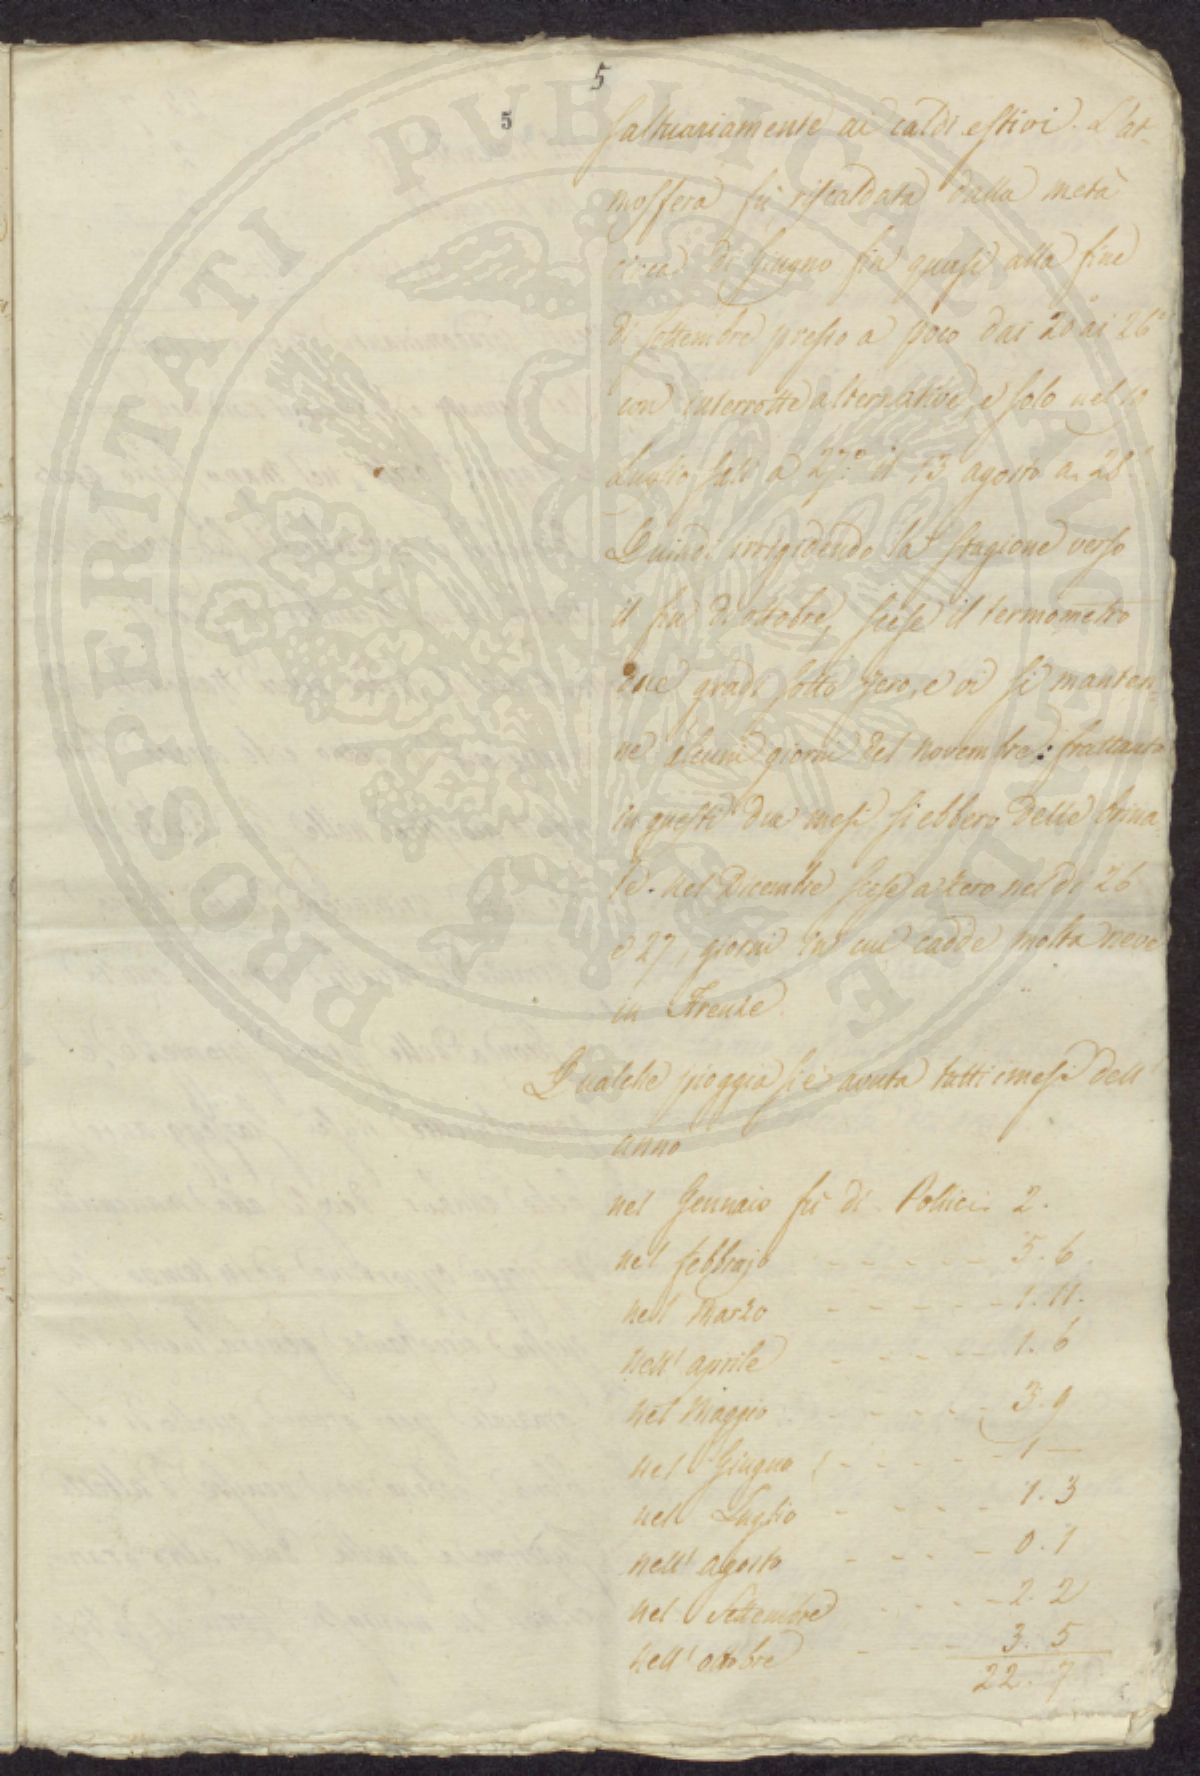 5
5
saltuariamente ai caldi estivi. L'at-
mosfera fù riscaldata dalla metà
circa di Giugno fin quasi alla fine
di settembre presso a poco dai 20° ai 26°
con interrotte alternative, e solo nel 10
Luglio salì a 27.° il 13 agosto a 28°.
Quindi irrigidendo la stagione verso
il fin di ottobre, scese il termometro
due gradi sotto zero, e vi si manten-
ne alcuni giorni del novembre: frattanto
in questi due mesi si ebbero delle brina
te. nel Dicembre scese a zero nel dì 26
e 27, giorni in cui cadde molta neve
in Firenze.
Qualche pioggia si è avuta tutti i mesi dell'
anno
nel Gennaio fù di Pollici 2.
nel febbrajo - - - - - 5. 6.
nel Marzo - - - - - 1. 11.
nell' aprile - - - - - 1. 6
nel Maggio - - - - - 3. 9
nel Giugno - - - - - 1 —
nel Luglio - - - - - 1. 3
nell' agosto - - - - 0. 1
nel Settembre - - - - 2. 2
nell' ottobre - - - - 3. 5
22. 7
PROSPERITATI PUBLICAE AUGENDAE